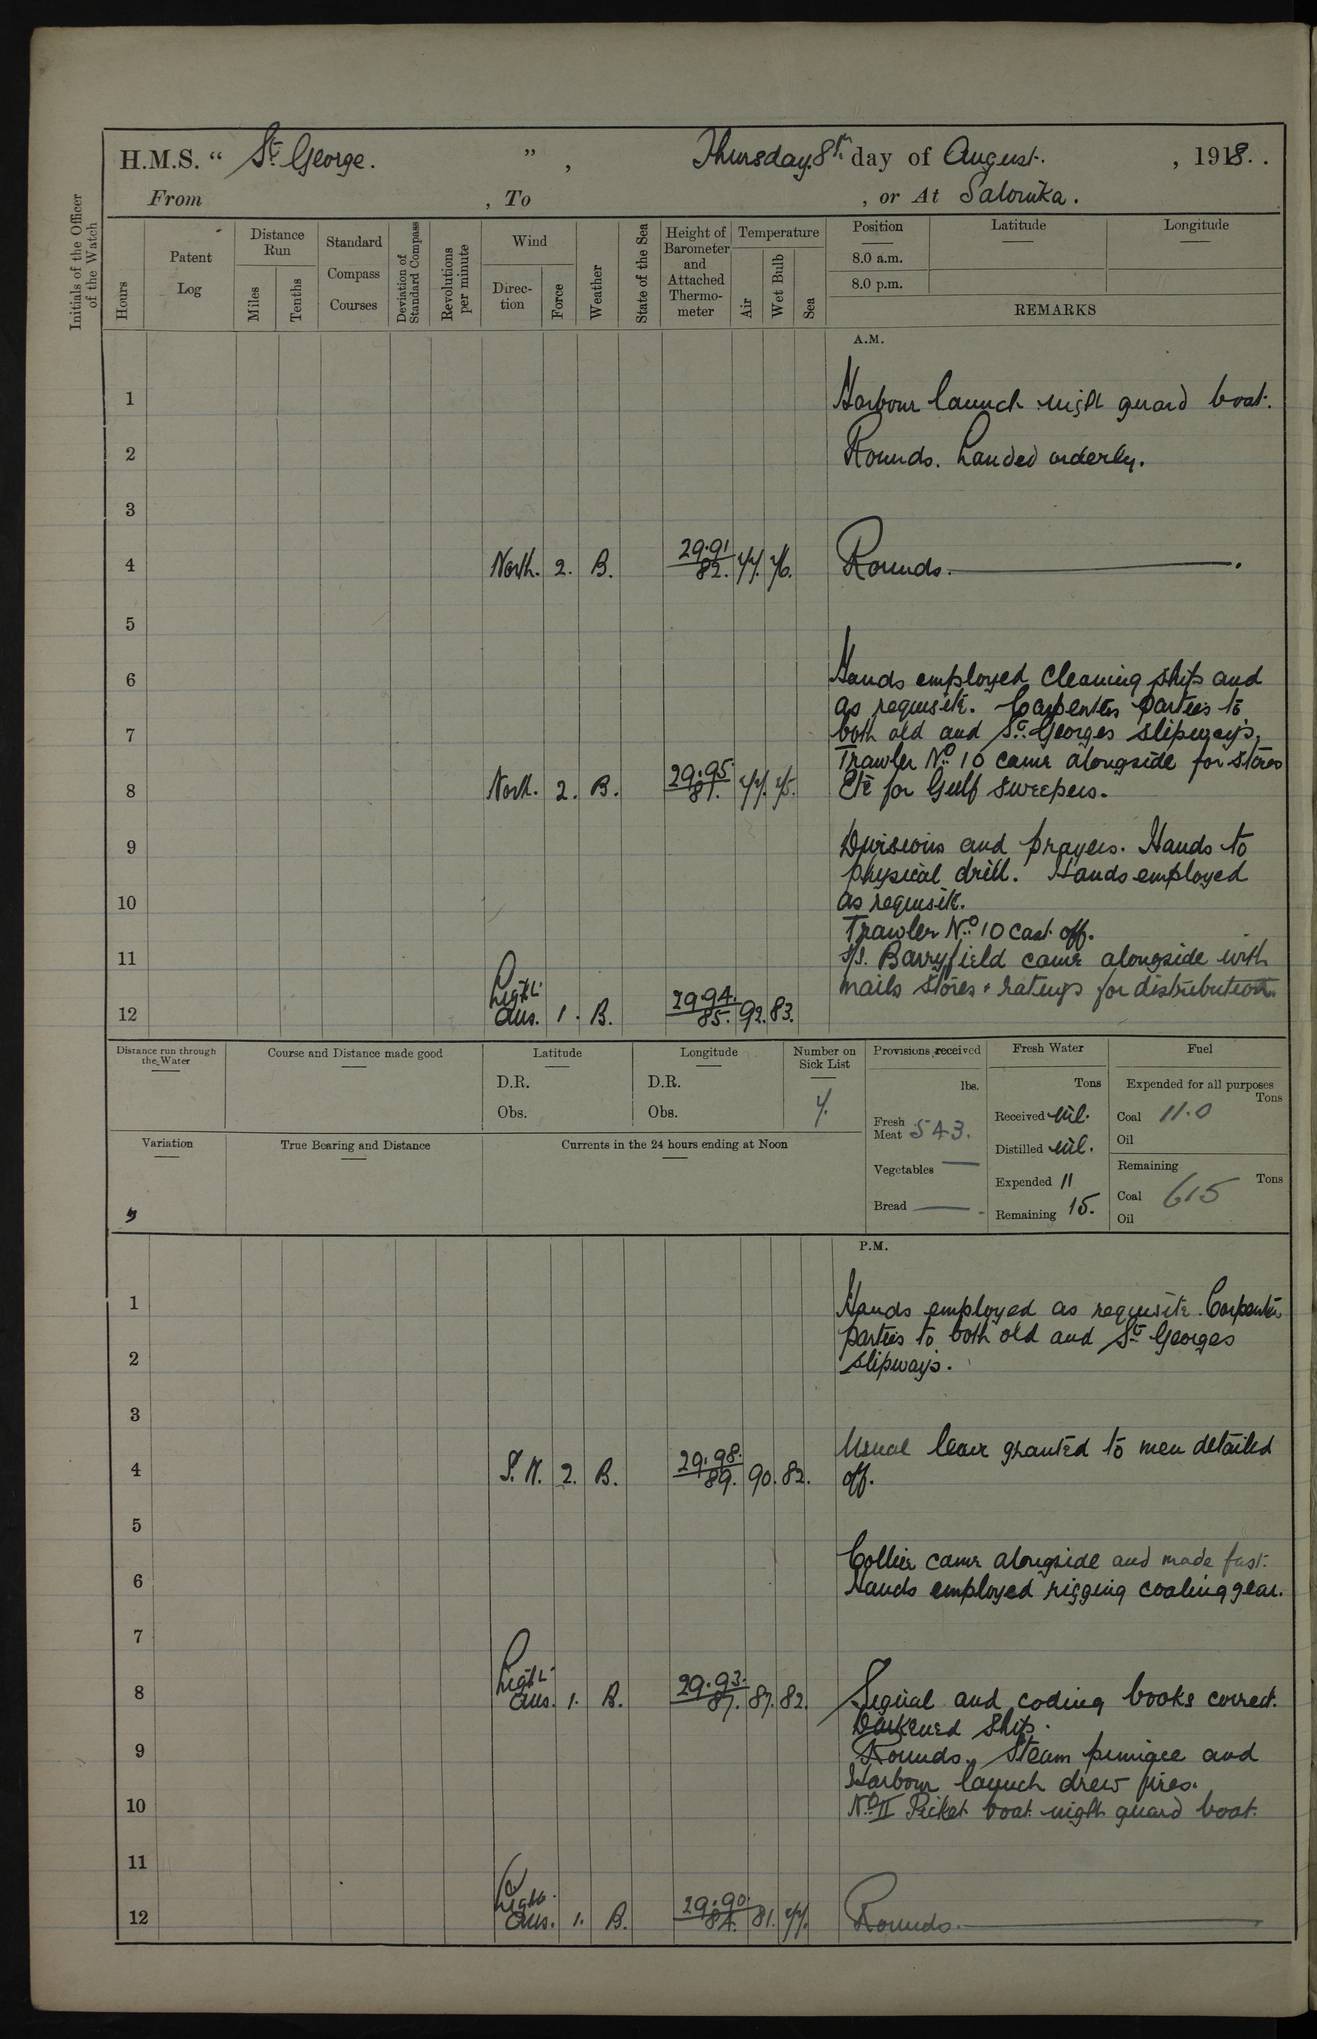 H.M.S. “ St. George. ” , Thursday. 8th. day of August. , 1918. .
From , To , or At Salonika.
Initials of the Officer of the Watch
Hours
Patent Log
Distance Run
Miles
Tenths
Standard Compass Courses
Deviation of Standard Compass
Revolutions per minute
Wind
Direc-tion
Force
Weather
State of the Sea
Height of Barometer and Attached Thermo-meter
Temperature
Air
Wet Bulb
Sea
Position Latitude Longitude
8.0 a.m.
8.0 p.m.
REMARKS
A.M.
1 Harbour launch night guard boat.
2 Rounds. Landed orderly.
3
4 North. 2. B. 29.91 82. 77. 76. Rounds.
5
6 Hands employed cleaning ship and
as requisite. Carpenters parties to
7 both old and St. Georges slipways.
Trawler No. 10 came alongside for stores
8 North. 2. B. 29.95. 81. 77. 75. Etc for Gulf sweepers.
9 Divisions and prayers. Hands to
physical drill. Hands employed
10 as requisite.
Trawler No. 10 cast off.
11 S/S. Barryfield came alongside with
mails stores + ratings for distribution.
12 Light airs. 1. B. 29.94. 85. 92. 83.
Distance run through the Water
Course and Distance made good
Latitude
D.R.
Obs.
Longitude
D.R.
Obs.
Number on Sick List
7.
Provisions received
lbs.
Fresh Meat 543.
Vegetables —
Bread —
Fresh Water
Tons
Received nil.
Distilled nil.
Expended 11
Remaining 15.
Fuel
Expended for all purposes
Tons
Coal 11.0
Oil
Remaining
Tons
Coal 615
Oil
Variation
True Bearing and Distance
Currents in the 24 hours ending at Noon
P.M.
1 Hands employed as requisite. Carpenters
parties to both old and St. Georges
2 slipways.
3
Usual leave granted to men detailed
4 2. B. 29.98. 89. 90. 82. off.
5
Collier came alongside and made fast.
6 Hands employed rigging coaling gear.
7
8 Light airs. 1. B. 29.93. 87. 87. 82. Signal and coding books correct.
Darkened ship.
9 Rounds. Steam pinnace and
Harbour launch drew fires.
10 No. II Picket boat night guard boat.
11
12 Light airs. 1. B. 29.90. 84. 81. 77. Rounds.